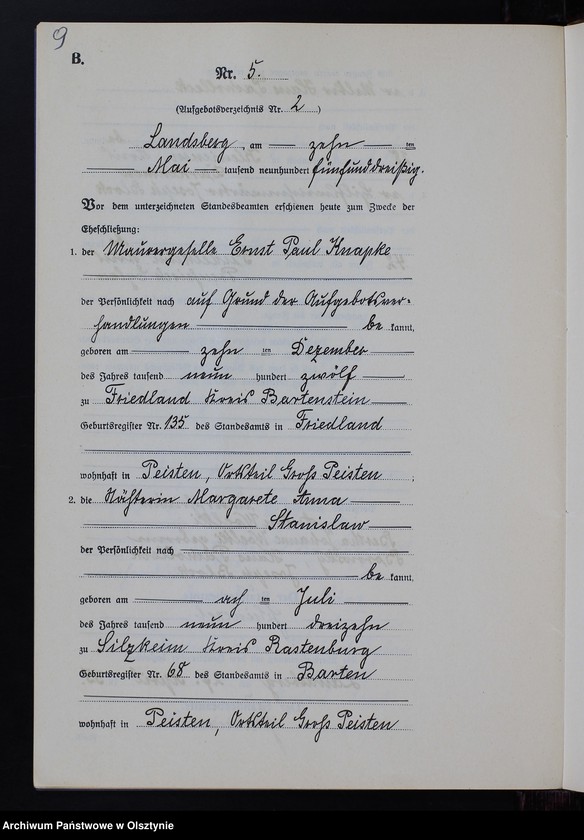 9
B.
Nr. 5.
(Aufgebotsverzeichnis Nr. 2)
Landsberg, am zehn ten
Mai tausend neunhundert fünfunddreißig.
Vor dem unterzeichneten Standesbeamten erschienen heute zum Zwecke der
Eheschließung:
1. der Maurergeselle Ernst Paul Knapke
der Persönlichkeit nach auf Grund der Aufgebotsver-
handlungen be kannt,
geboren am zehn ten Dezember
des Jahres tausend neun hundert zwölf
zu Friedland Kreis Bartenstein
Geburtsregister Nr. 135 des Standesamts in Friedland
wohnhaft in Peisten, Ortsteil Groß Peisten ;
2. die Nähterin Margarete Anna
Stanislaw
der Persönlichkeit nach
be kannt,
geboren am ach ten Juli
des Jahres tausend neun hundert dreizehn
zu Silzkeim Kreis Rastenburg
Geburtsregister Nr. 68 des Standesamts in Barten
wohnhaft in Peisten, Ortsteil Groß Peisten
Archiwum Państwowe w Olsztynie